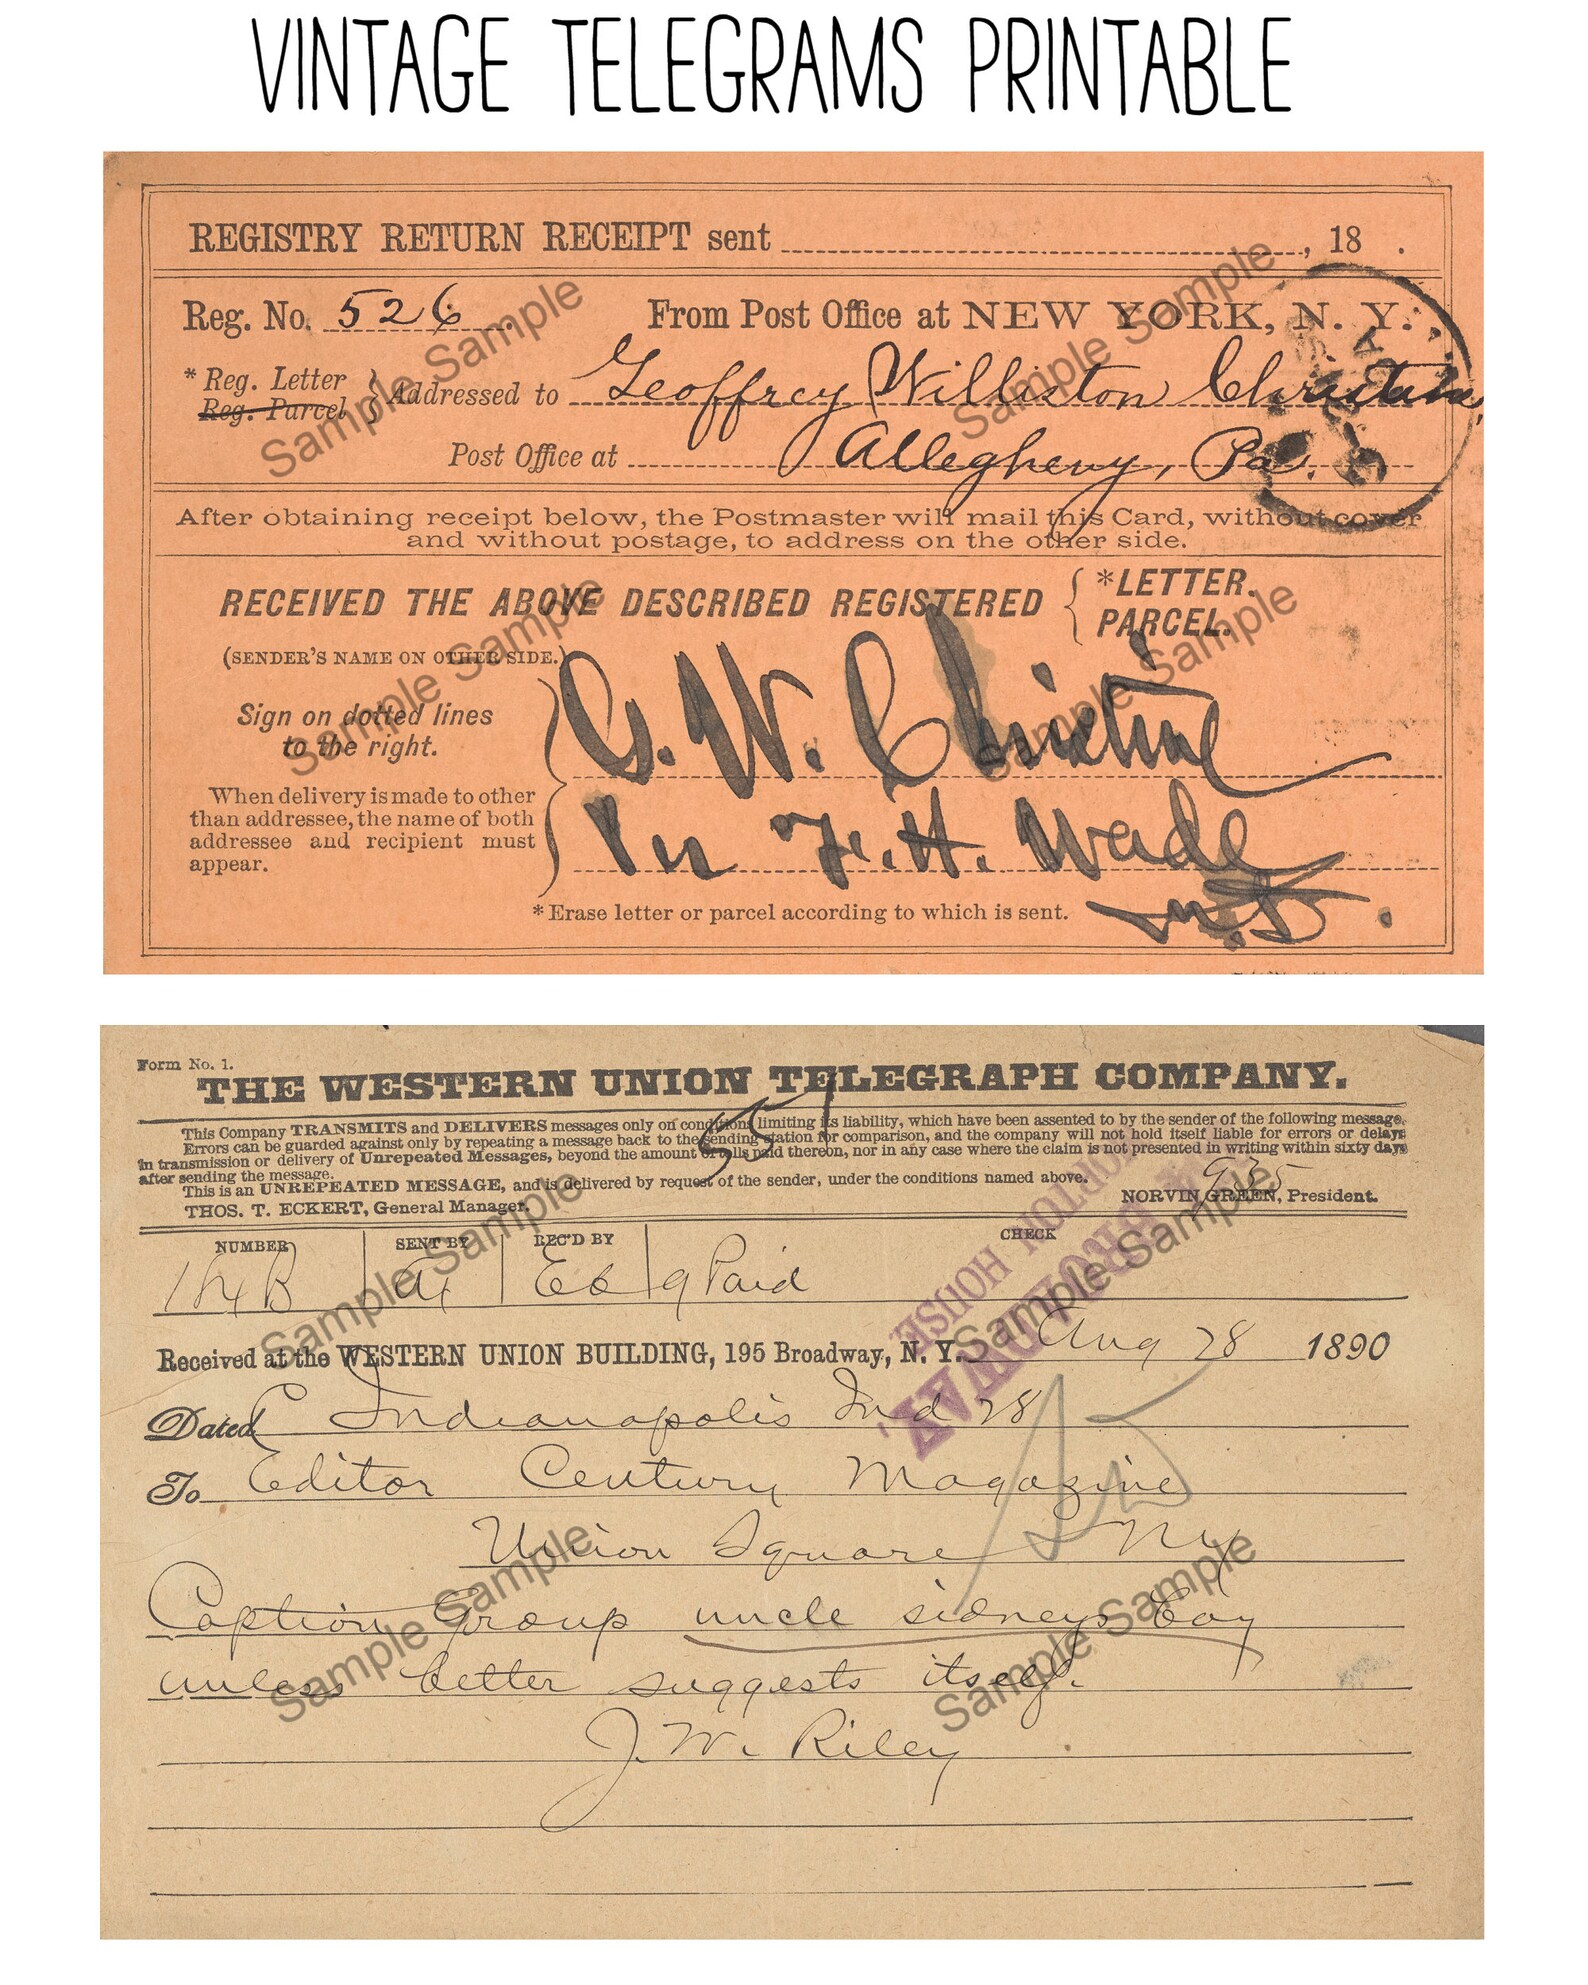 VINTAGE TELEGRAMS PRINTABLE
REGISTRY RETURN RECEIPT sent , 18 .
Reg. No. 526 From Post Office at NEW YORK, N. Y.
* Reg. Letter
Reg. Parcel } Addressed to Geoffrey Williston Christine,
Post Office at Allegheny, Pa.
After obtaining receipt below, the Postmaster will mail this Card, without cover
and without postage, to address on the other side.
RECEIVED THE ABOVE DESCRIBED REGISTERED { *LETTER.
PARCEL.
(SENDER'S NAME ON OTHER SIDE.)
Sign on dotted lines
to the right.
G. W. Christine
When delivery is made to other
than addressee, the name of both
addressee and recipient must
appear.
Per F. H. Wade
M.D.
* Erase letter or parcel according to which is sent.
Sample Sample
Sample Sample
Sample Sample
Sample Sample
Form No. 1.
THE WESTERN UNION TELEGRAPH COMPANY.
551
This Company TRANSMITS and DELIVERS messages only on conditions limiting its liability, which have been assented to by the sender of the following message.
Errors can be guarded against only by repeating a message back to the sending station for comparison, and the company will not hold itself liable for errors or delays
in transmission or delivery of Unrepeated Messages, beyond the amount of tolls paid thereon, nor in any case where the claim is not presented in writing within sixty days
after sending the message.
This is an UNREPEATED MESSAGE, and is delivered by request of the sender, under the conditions named above.
935
THOS. T. ECKERT, General Manager. NORVIN GREEN, President.
NUMBER SENT BY REC'D BY CHECK
9 Paid
BROADWAY
HOUSE
Received at the WESTERN UNION BUILDING, 195 Broadway, N. Y. Aug 28 1890
Dated Indianapolis Ind 28
To Editor Century Magazine
Union Square Ny
Caption Group uncle sidneys boy
unless better suggests itself.
J. W. Riley
Sample Sample
Sample Sample
Sample Sample
Sample Sample